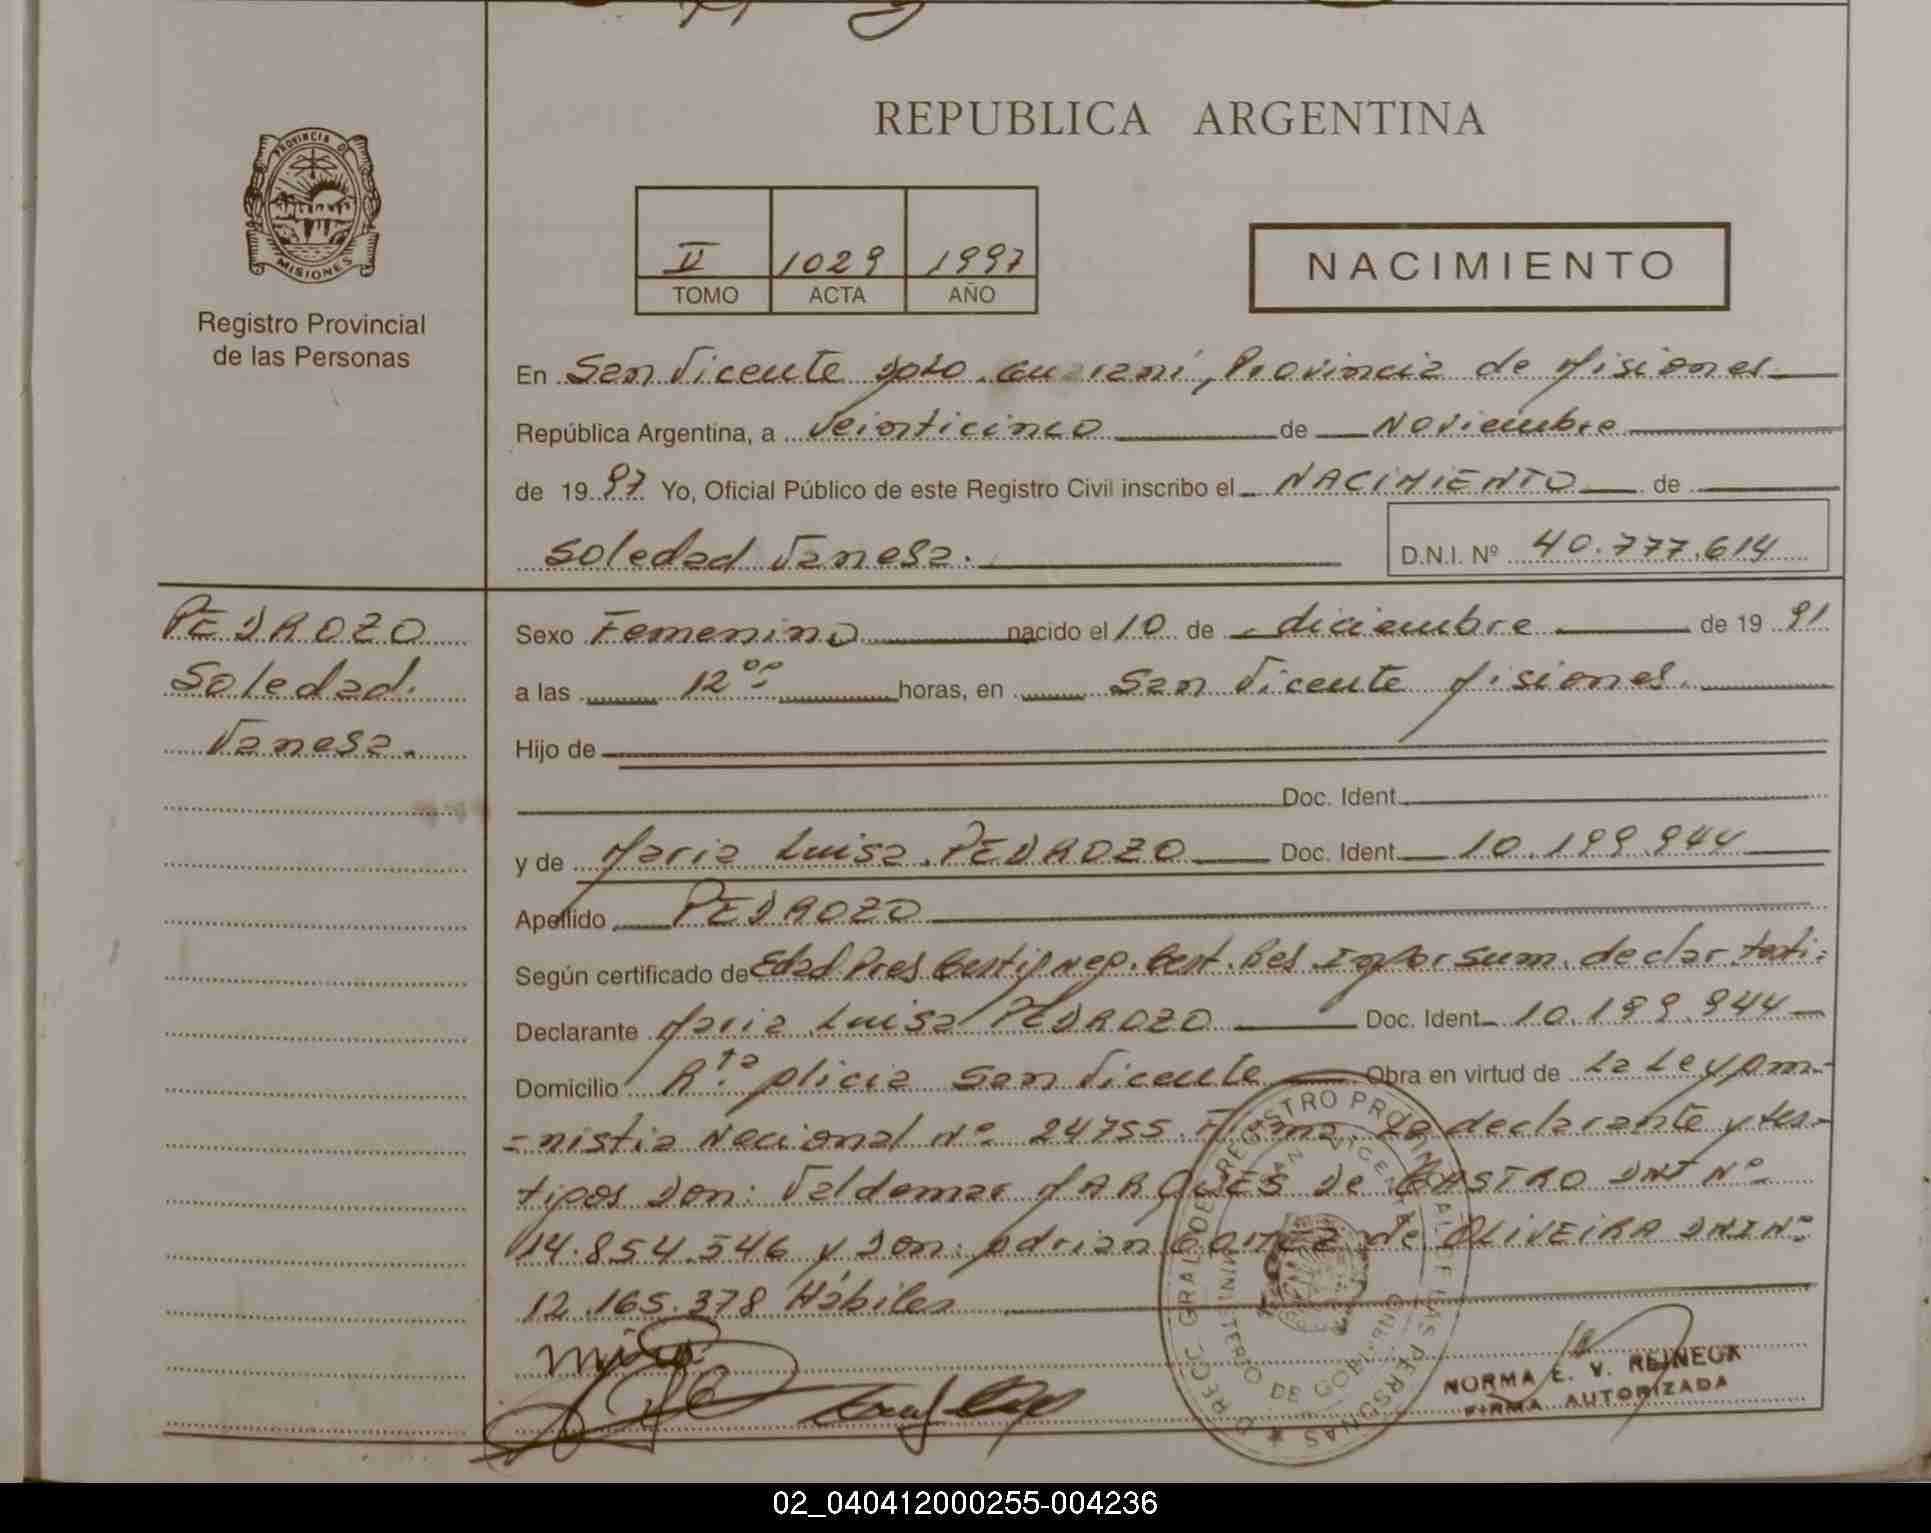 REPUBLICA ARGENTINA
PROVINCIA DE
MISIONES
Registro Provincial
de las Personas
II 1029 1997
TOMO ACTA AÑO
NACIMIENTO
En San Vicente Dpto. Guarani, Provincia de Misiones
República Argentina, a Veinticinco de Noviembre
de 19 97 Yo, Oficial Público de este Registro Civil inscribo el NACIMIENTO de
Soledad Vanesa. D.N.I. Nº 40.777.614
PEDROZO
Soledad.
Vanesa.
Sexo Femenino nacido el 10 de diciembre de 19 91
a las 12 00 horas, en San Vicente Misiones.
Hijo de
Doc. Ident.
y de Maria Luisa PEDROZO Doc. Ident. 10.199.944
Apellido PEDROZO
Según certificado de Edad Pres Certif Neg. Cert. Sum. declar. testi:
Declarante Maria Luisa PEDROZO Doc. Ident. 10.199.944
Domicilio San Vicente Obra en virtud de La Ley Am-
-nistia Nacional Nº 24755. Firma. La declarante y tes-
tigos Don: Valdemar MARQUES De CASTRO DNI Nº
14.854.546 y Don: Adrian GOMEZ de OLIVEIRA DNI Nº
12.165.378 Hábiles
DIRECC. GRAL. DE REGISTRO PROVINCIAL DE LAS PERSONAS
SAN VICENTE
MINISTERIO DE GOBIERNO
NORMA E. V. REINECK
FIRMA AUTORIZADA
02_040412000255-004236